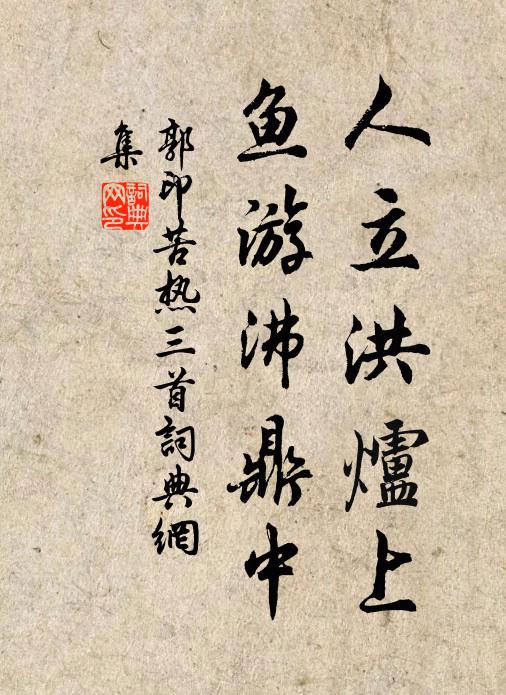 人立洪爐上
鱼游沸鼎中
郭印苦热三首詞典網
集
詞典
网印